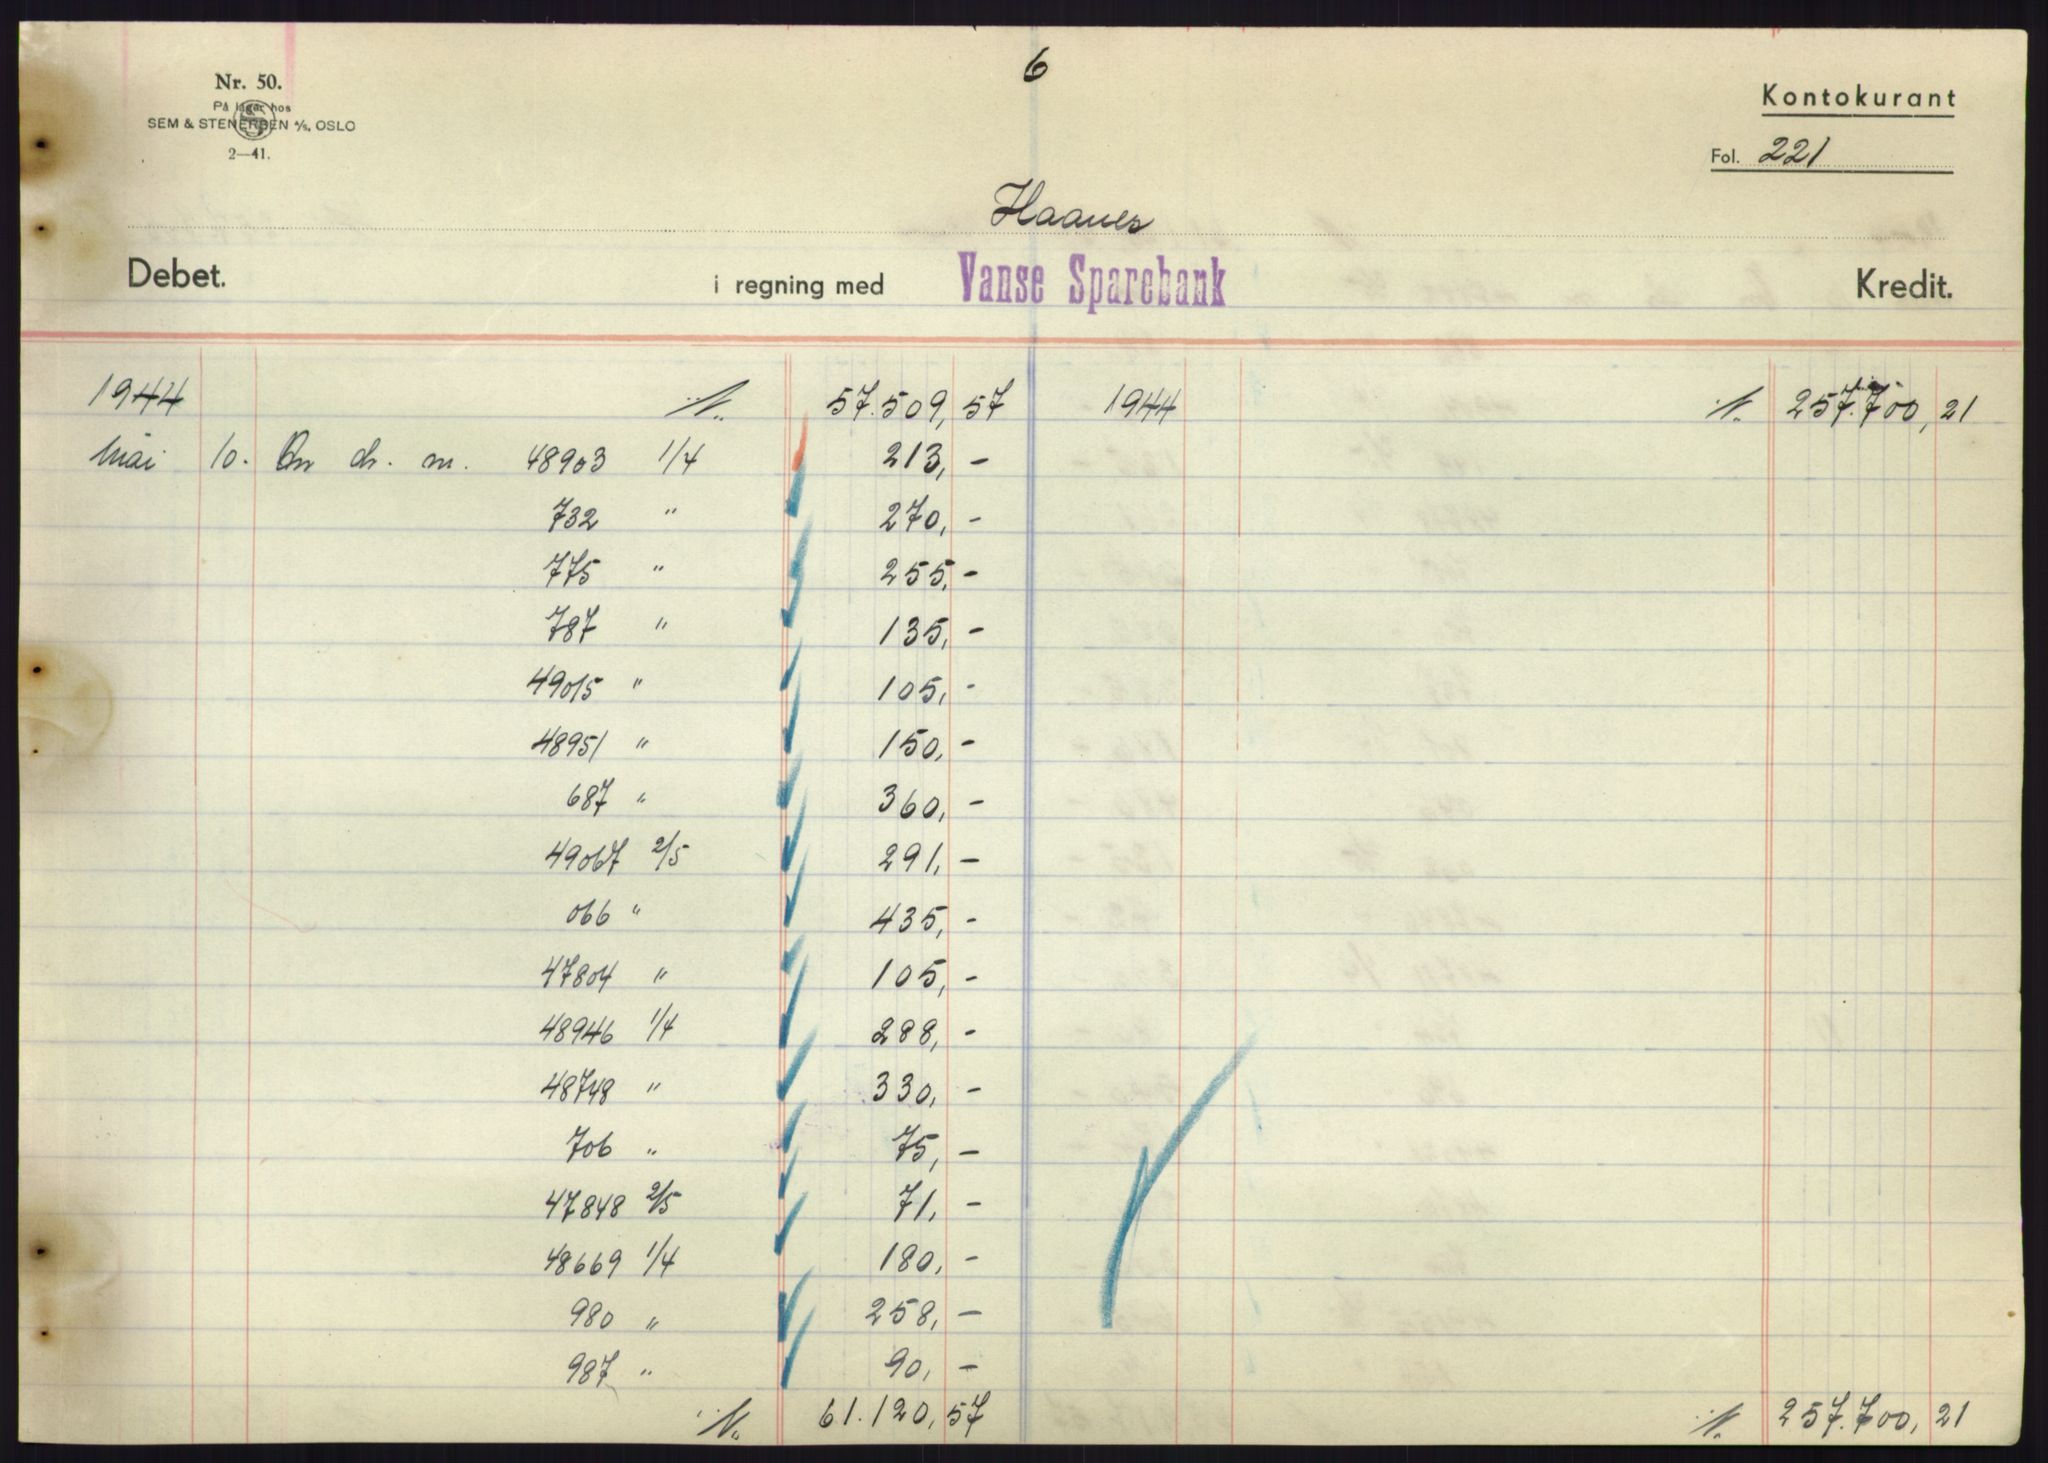 6
Nr. 50.
På lager hos
SEM & STENERSEN A/S, OSLO
2—41.
Kontokurant
Fol. 221
Haanes
Debet. i regning med Vanse Sparebank Kredit.
1944 57.509,57 1944 257.700,21
Mai 10. An ch. m. 48903 1/4 213,–
732 " 270,–
775 " 255,–
787 " 135,–
49015 " 105,–
48951 " 150,–
687 " 360,–
49067 2/5 291,–
066 " 435,–
47804 " 105,–
48946 1/4 288,–
48748 " 330,–
706 " 75,–
47848 2/5 71,–
48669 1/4 180,–
980 " 258,–
987 " 90,–
61.120,57 257.700,21